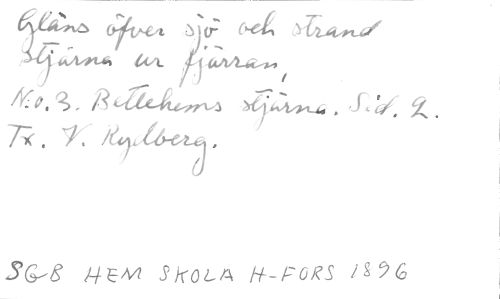 Gläns öfver sjö och strand
stjärna ur fjärran,
N:o. 3. Betlehems stjärna. Sid. 2.
Tx. V. Rydberg.
SGB HEM SKOLA H-FORS 1896